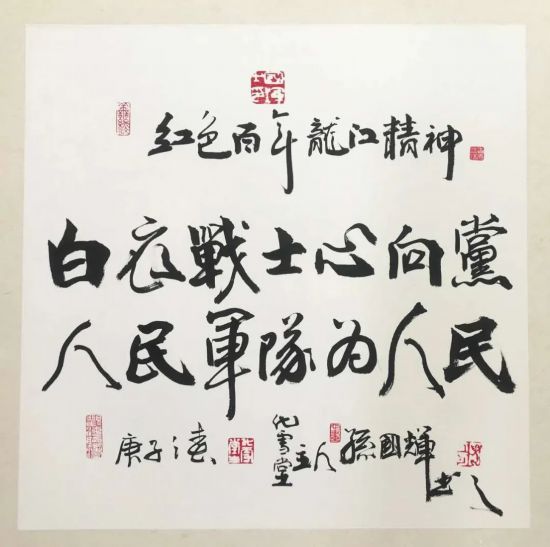 红色百年龍江精神
白衣戰士心向黨
人民軍隊為人民
庚子春 化雪堂主人 孫國輝书之